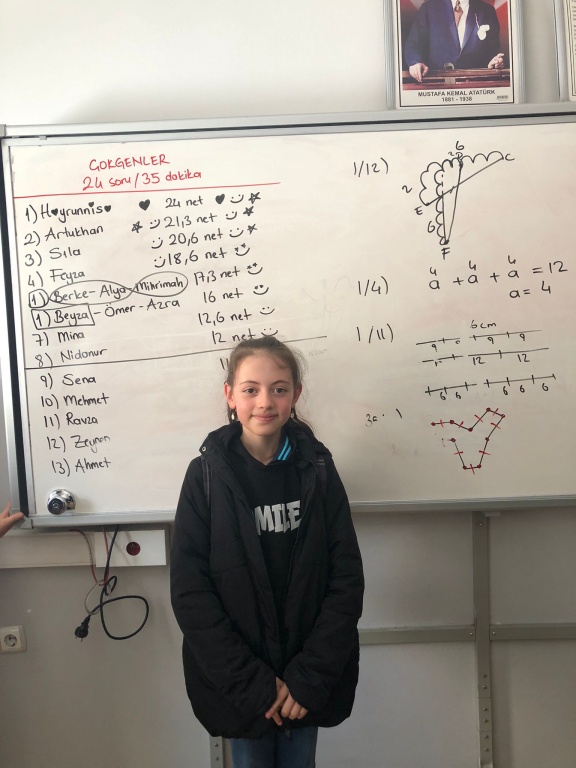 MUSTAFA KEMAL ATATÜRK
1881 - 1938
ÇOKGENLER
24 soru / 35 dakika
1) H♥yrunnis♥ ♥ 24 net ♥
2) Artukhan 21,3 net
3) Sıla 20,6 net
4) Feyza 18,6 net
1) Berke - Alya - Mihrimah 17,3 net
1) Beyza - Ömer - Azra 16 net
7) Mina 12,6 net
8) Nidanur 12 net
9) Sena
10) Mehmet
11) Ravza
12) Zeynep
13) Ahmet
1/12)
6
2
C
2
E
6
F
1/4)
4 4 4
a + a + a = 12
a = 4
1/11)
6cm
9 9 9
12 12
6 6 6 6 6
SMILE